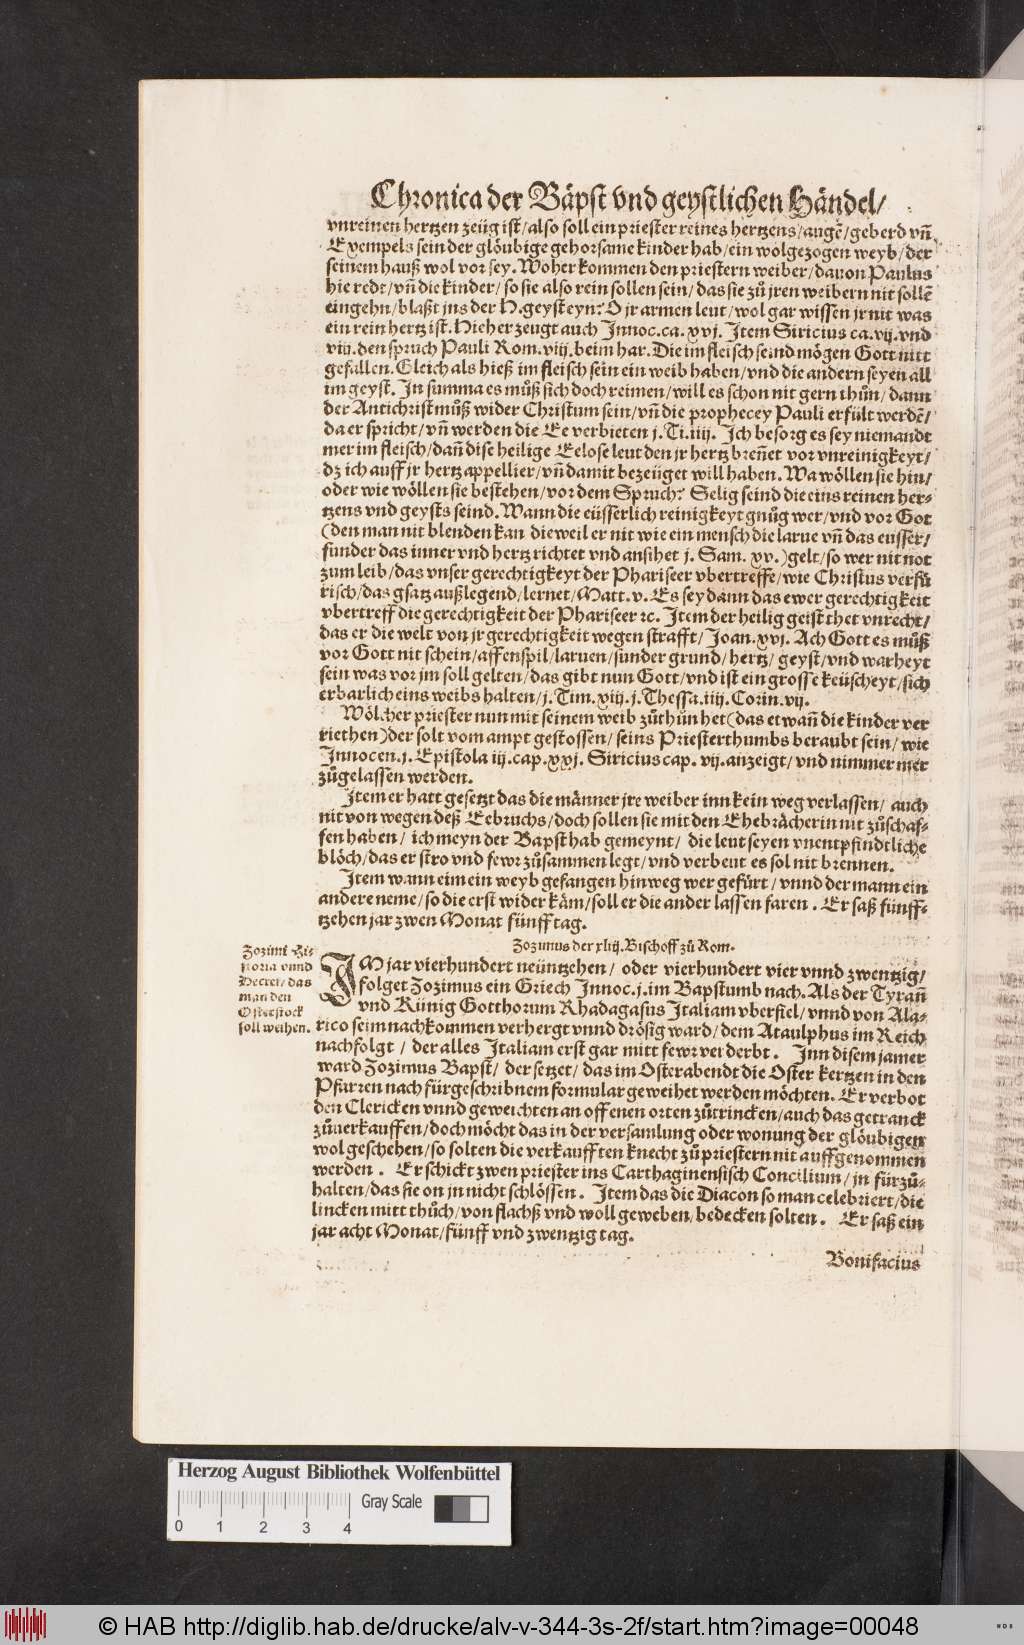 Chronica der Bäpst vnd geystlichen Händel/
vnreinen hertzen zeüg ist/also soll ein priester reines hertzens/augẽ/geberd vñ
Exempels sein der glöubige gehorsame kinder hab/ein wolgezogen weyb/der
seinem hauß wol vor sey. Woher kommen den priestern weiber/dauon Paulus
hie redt/vñ die kinder/so sie also rein sollen sein/das sie zů jren weibern nit sollẽ
eingehn/blaßt jns der H.geyst eyn? O jr armen leut/wol gar wissen jr nit was
ein rein hertz ist. Hieher zeugt auch Innoc.ca.xvj. Item Siricius ca.vij.vnd
viij.den spruch Pauli Rom.viij.beim har. Die im fleisch seind mögen Gott nitt
gefallen. Gleich als hieß im fleisch sein ein weib haben/vnd die andern seyen all
im geyst. In summa es můß sich doch reimen/will es schon nit gern thůn/dann
der Antichrist můß wider Christum sein/vñ die prophecey Pauli erfült werdẽ/
da er spricht/vñ werden die Ee verbieten j.Ti.iiij. Ich besorg es sey niemandt
mer im fleisch/dañ dise heilige Eelose leut den jr hertz breñet vor vnreinigkeyt/
dz ich auff jr hertz appellier/vñ damit bezeüget will haben. Wa wöllen sie hin/
oder wie wöllen sie bestehen/vor dem Spruch? Selig seind die eins reinen her-
tzens vnd geysts seind. Wann die eüsserlich reinigkeyt gnůg wer/vnd vor Got
(den man nit blenden kan dieweil er nit wie ein mensch die larue vñ das eusser/
sunder das inner vnd hertz richtet vnd ansihet j. Sam. xv.)gelt/so wer nit not
zum leib/das vnser gerechtigkeyt der Phariseer vbertreffe/wie Christus verfü
risch/das gsatz außlegend/lernet/Matt.v. Es sey dann das ewer gerechtigkeit
vbertreff die gerechtigkeit der Phariseer ꝛc. Item der heilig geist thet vnrecht/
das er die welt von jr gerechtigkeit wegen strafft/Joan.xvj. Ach Gott es můß
vor Gott nit schein/affenspil/laruen/sunder grund/hertz/geyst/vnd warheyt
sein was vor jm soll gelten/das gibt nun Gott/vnd ist ein grosse keüscheyt/sich
erbarlich eins weibs halten/j.Tim.viij.j.Thessa.iiij.Corin.vij.
Wölcher priester nun mit seinem weib zůthůn het(das etwañ die kinder ver
riethen)der solt vom ampt gestossen/seins Priesterthumbs beraubt sein/wie
Innocen.j.Epistola iij.cap.xxj. Siricius cap.vij.anzeigt/vnd nimmer mer
zůgelassen werden.
Item er hatt gesetzt das die männer jre weiber inn kein weg verlassen/ auch
nit von wegen deß Eebruchs/doch sollen sie mit den Ehebrächerin nit zůschaf-
fen haben/ ich meyn der Bapst hab gemeynt/ die leut seyen vnentpfindtliche
blöch/das er stro vnd fewr zůsammen legt/vnd verbeut es sol nit brennen.
Item wann eim ein weyb gefangen hinweg wer gefürt/vnnd der mann ein
andere neme/so die erst wider käm/soll er die ander lassen faren. Er saß fünff-
tzehen jar zwen Monat fünff tag.
Zozimus der xliij.Bischoff zů Rom.
Zozimi Hi-
storia vnnd
Decret/das
man den
Osterstock
soll weihen.
IM jar vierhundert neüntzehen/ oder vierhundert vier vnnd zwentzig/
folget Zozimus ein Griech Innoc.j.im Bapstumb nach. Als der Tyrañ
vnd Künig Gotthorum Rhadagasus Italiam vberfiel/vnnd von Ala-
rico seim nachkommen verhergt vnnd drösig ward/dem Ataulphus im Reich
nachfolgt/ der alles Italiam erst gar mitt fewr verderbt. Inn disem jamer
ward Zozimus Bapst/ der setzet/das im Osterabendt die Oster kertzen in den
Pfarren nach fürgeschribnem formular geweihet werden möchten. Er verbot
den Clericken vnnd geweichten an offenen orten zůtrincken/auch das getranck
zůuerkauffen/doch möcht das in der versamlung oder wonung der glöubigen
wol geschehen/so solten die verkaufften knecht zů priestern nit auffgenommen
werden. Er schickt zwen priester ins Carthaginensisch Concilium/jn fürzů-
halten/das sie on jn nicht schlössen. Item das die Diacon so man celebriert/die
lincken mitt thůch/von flachß vnd woll geweben/bedecken solten. Er saß ein
jar acht Monat/fünff vnd zwentzig tag.
Bonifacius
Herzog August Bibliothek Wolfenbüttel
Gray Scale
0 1 2 3 4
© HAB http://diglib.hab.de/drucke/alv-v-344-3s-2f/start.htm?image=00048